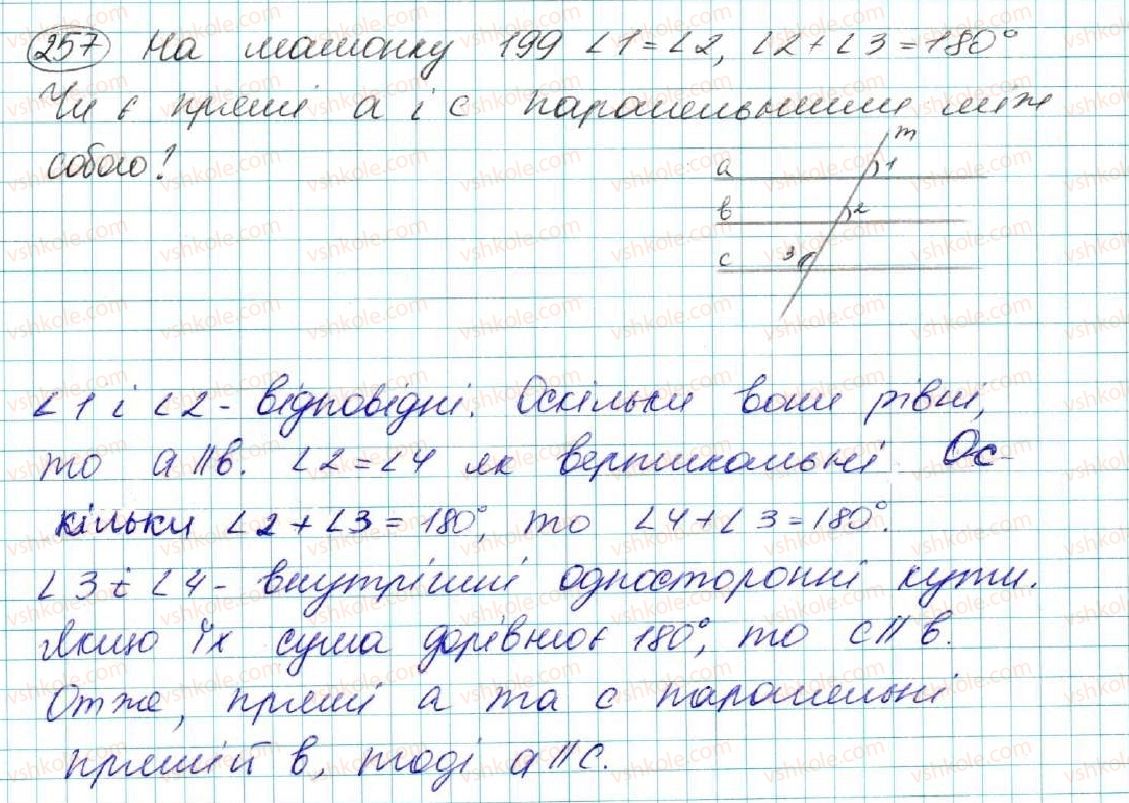 257 На малюнку 199 ∠1=∠2, ∠2+∠3=180°
Чи є прямі a і c паралельними між
собою?
m
a 1
в 2
c 3
∠1 і ∠2 - відповідні. Оскільки вони рівні,
то a∥в. ∠2=∠4 як вертикальні. Ос-
кільки ∠2+∠3=180°, то ∠4+∠3=180°.
∠3 і ∠4 - внутрішні односторонні кути.
Якщо їх сума дорівнює 180°, то c∥в.
Отже, прямі a та c паралельні
прямій в, тоді a∥c.